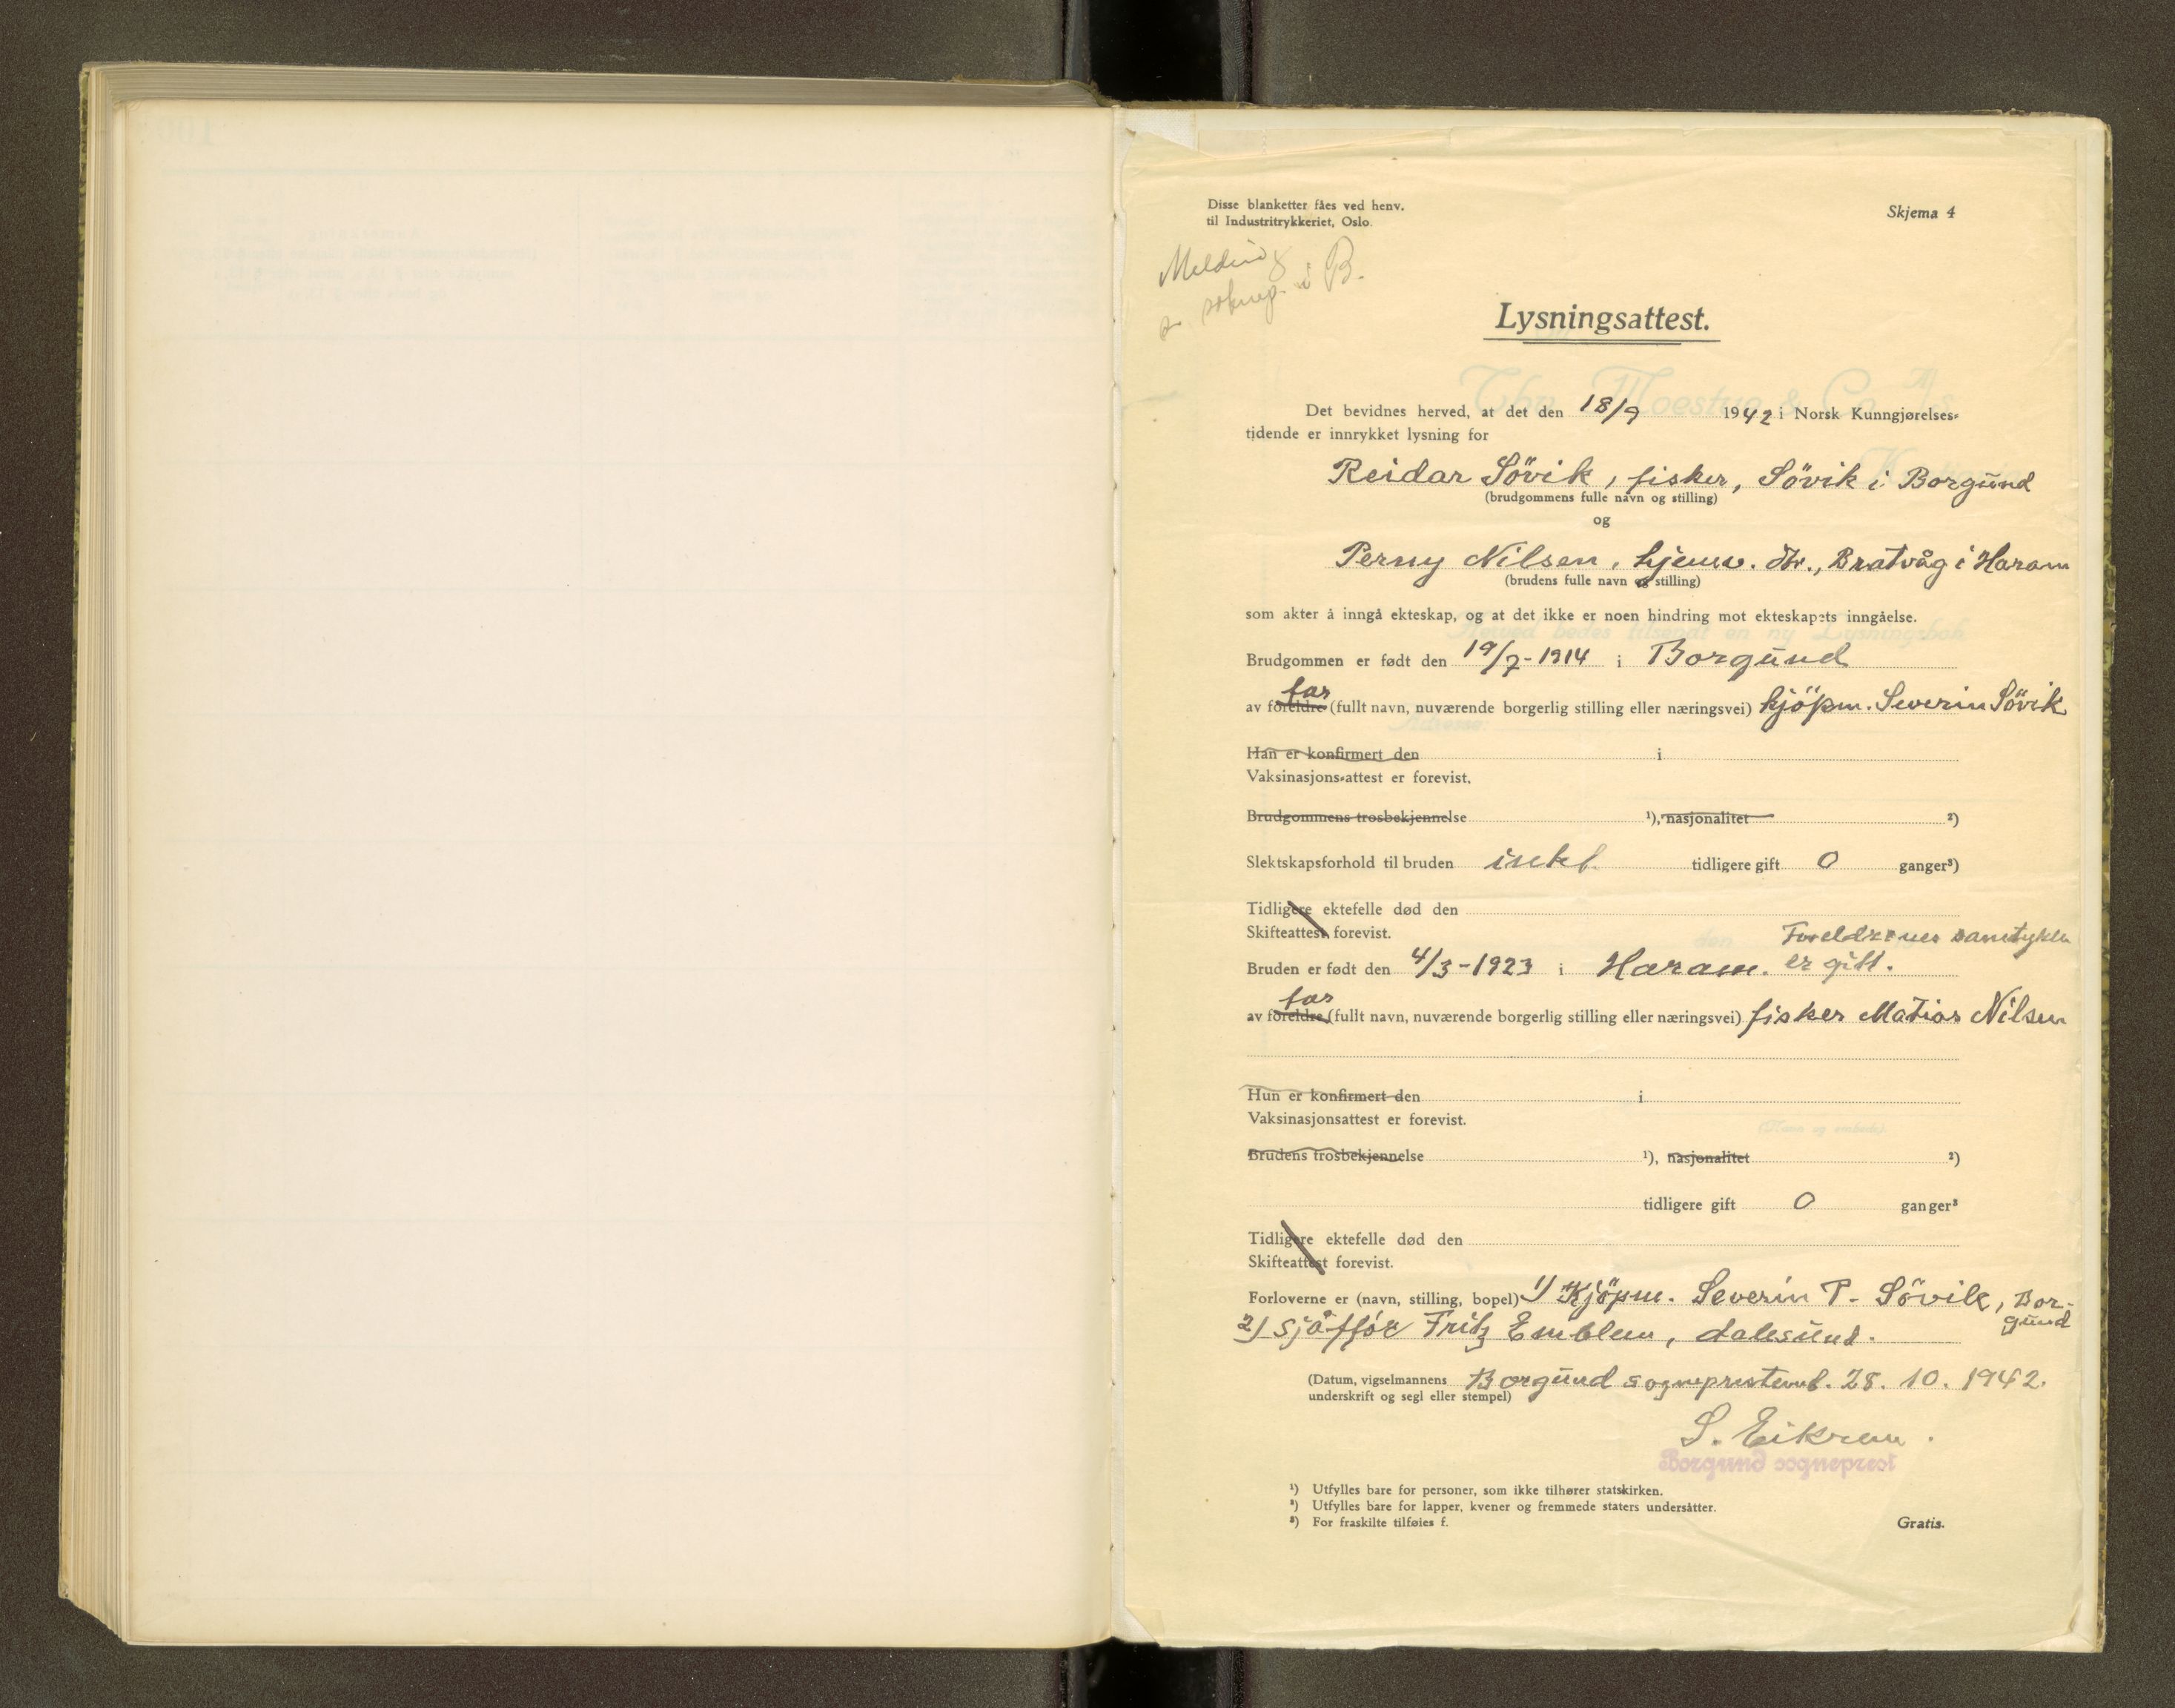 Disse blanketter fåes ved henv.
til Industritrykkeriet, Oslo.
Skjema 4
Melding
i B.
Lysningsattest.
Det bevidnes herved, at det den 18/9 1942 i Norsk Kunngjørelses-
tidende er innrykket lysning for
Reidar Sövik, fisker, Sövik i Borgund
(brudgommens fulle navn og stilling)
og
Perny Nilsen, hjemv. dtr., Bratvåg i Haram
(brudens fulle navn og stilling)
som akter å inngå ekteskap, og at det ikke er noen hindring mot ekteskapets inngåelse.
Brudgommen er født den 19/7-1914 i Borgund
far
av foreldre (fullt navn, nuværende borgerlig stilling eller næringsvei) kjöpm. Severin Sövik
Han er konfirmert den i
Vaksinasjons-attest er forevist.
Brudgommens trosbekjennelse ¹), nasjonalitet ²)
Slektskapsforhold til bruden intet tidligere gift 0 ganger³)
Tidligere ektefelle død den
Skifteattest forevist.
Foreldrenes samtykke
Bruden er født den 4/3-1923 i Haram. er gitt.
far
av foreldre (fullt navn, nuværende borgerlig stilling eller næringsvei) fisker Matias Nilsen
Hun er konfirmert den i
Vaksinasjonsattest er forevist.
Brudens trosbekjennelse ¹), nasjonalitet ²)
tidligere gift 0 ganger³
Tidligere ektefelle død den
Skifteattest forevist.
Forloverne er (navn, stilling, bopel) 1/ Kjöpm. Severin P. Sövik, Bor-
gund
2/ sjåfför Fritz Emblem, Aalesund.
(Datum, vigselmannens Borgund sogneprestemb. 28. 10. 1942.
underskrift og segl eller stempel)
S. Eikrem.
Borgund sogneprest
¹) Utfylles bare for personer, som ikke tilhører statskirken.
²) Utfylles bare for lapper, kvener og fremmede staters undersåtter.
³) For fraskilte tilføies f.
Gratis.